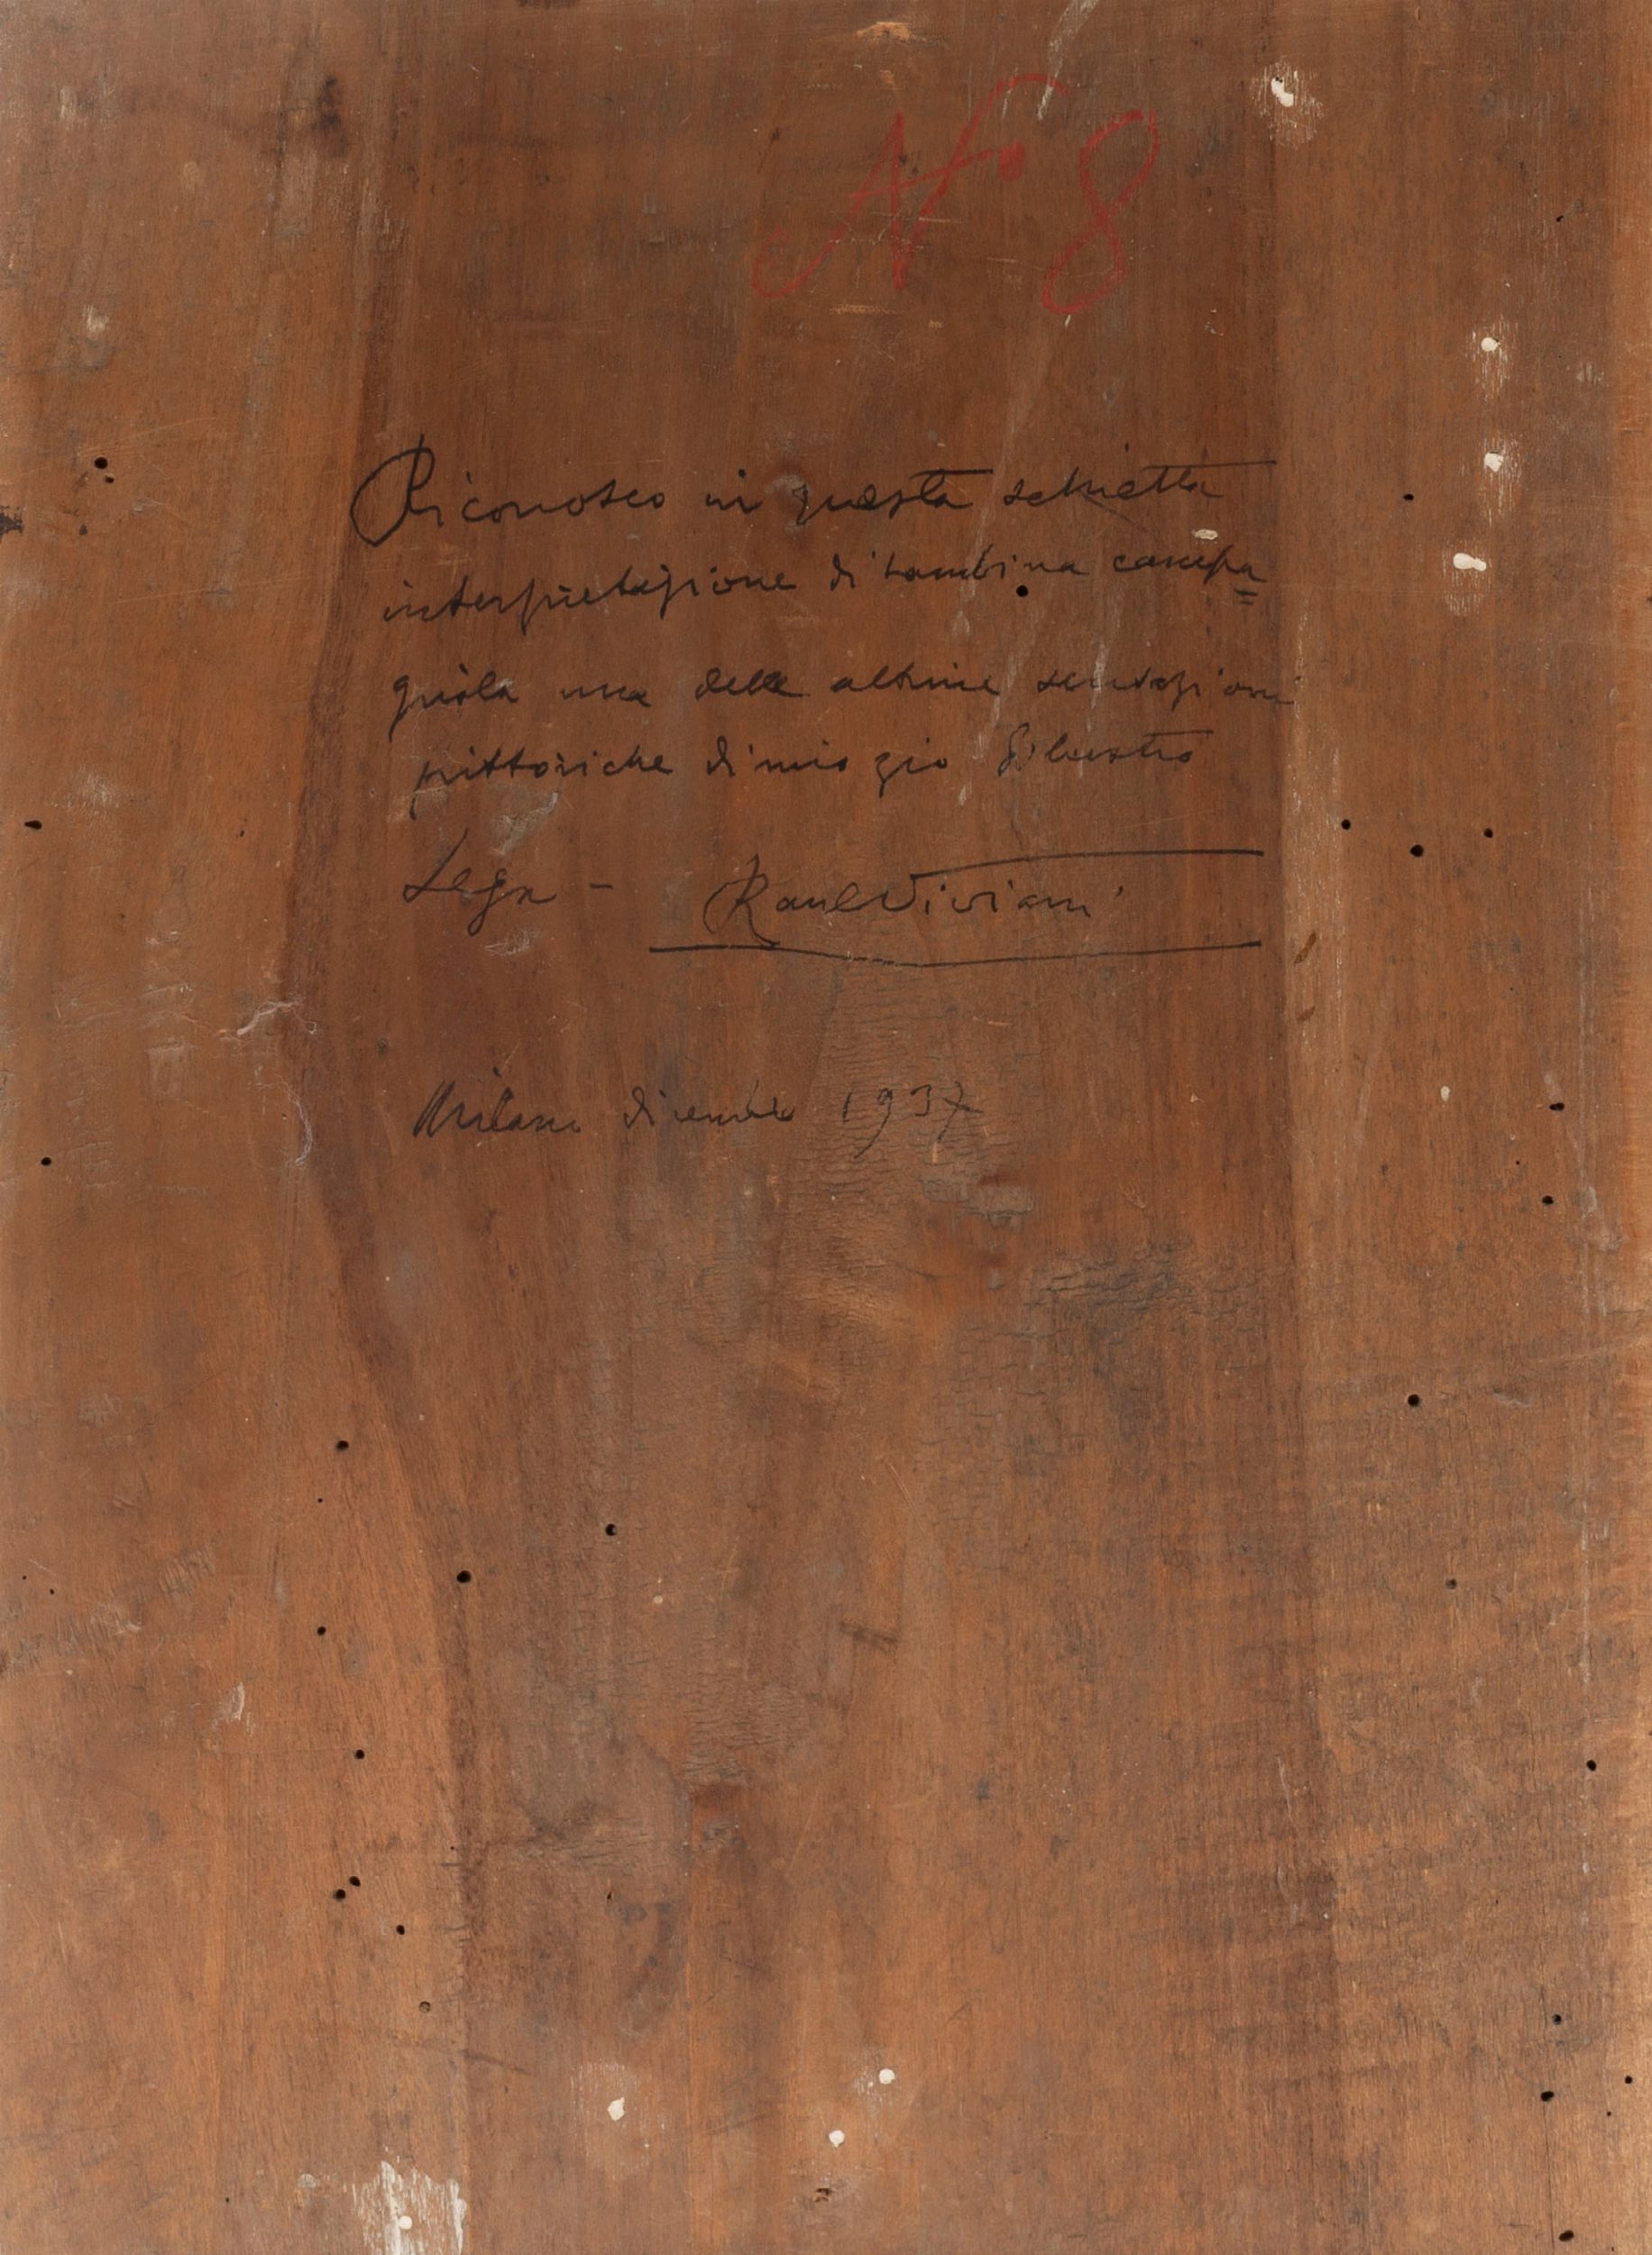 N° 8
Riconosco in questa schietta
interpretazione di bambina campa=
gnòla una delle ultime sensazioni
pittoriche di mio zio Silvestro
Lega - Raul Viviani
Milano dicembre 1937